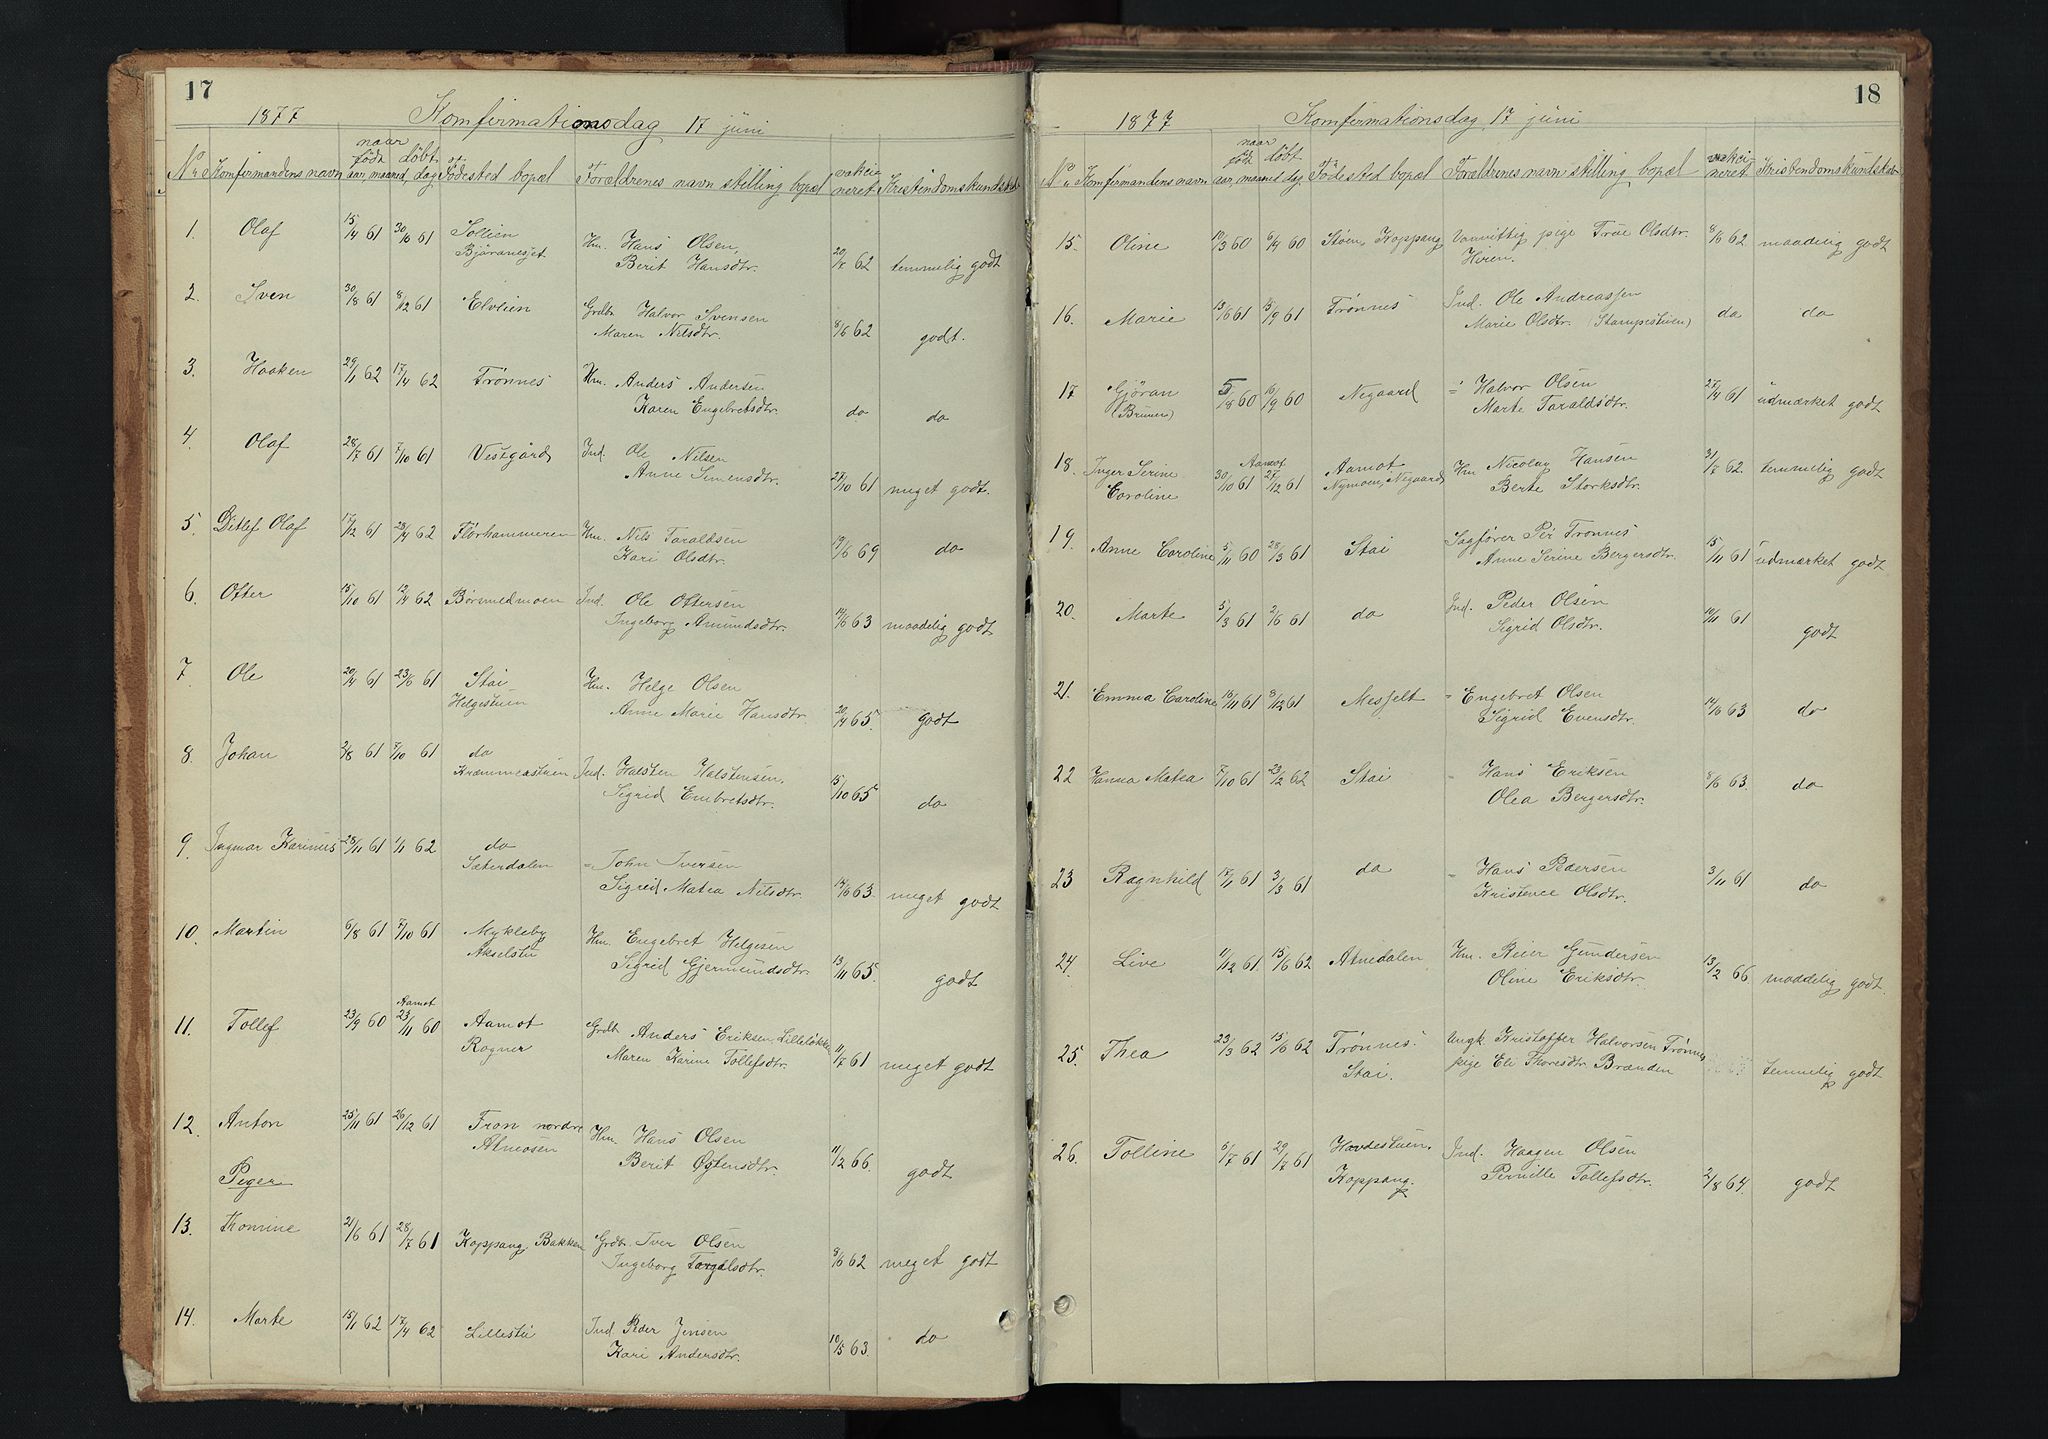 17
1877 Komfirmationsdag 17 juni
naar
født døbt og vakci-
No Komfirmandens navn aar, maaned, dag Fødested bopæl Forældrenes navn stilling bopæl neret Kristendomskundskab
1. Olaf 15/4 61 30/6 61 Sollien Hm. Hans Olsen
Bjøranesset Berit Hansdtr. 20/8 62 temmelig godt
2. Sven 30/8 61 8/12 61 Elvlien Grdbr. Halvor Svensen
Maren Nilsdtr. 8/6 62 godt.
3. Haaken 29/1 62 17/4 62 Trønnes Hm. Anders Andersen
Karen Engebretsdtr. do do
4. Olaf 28/7 61 7/10 61 Vestgård Ind. Ole Nilsen
Anne Simensdtr. 27/10 61 meget godt.
5. Ditlef Olaf 17/12 61 23/4 62 Flørhammeren Hm. Nils Taraldsen
Kari Olsdtr. 19/6 69 do
6. Otter 15/10 61 12/4 62 Børsmedmoen Ind. Ole Ottersen
Ingeborg Amundsdtr. 14/6 63 maadelig godt
7. Ole 20/4 61 23/6 61 Stai Hm. Helge Olsen
Helgestuen Anne Marie Hansdtr. 20/4 65. godt
8. Johan 2/8 61 7/10 61 do
Kræmmerstuen Ind. Halsten Halstensen
Sigrid Embretsdtr. 15/10 65 do
9. Ingmar Karinus 23/11 61 1/1 62 do
Sæterdalen = John Iversen
Sigrid Matea Nilsdtr. 14/6 63. meget godt
10. Martin 6/8 61 7/10 61 Mykleby Hm. Engebret Helgesen
Akselstu Sigrid Gjermundsdtr. 13/11 65. godt
Aamot
11. Tollef 23/9 60 23/11 60 Aamot Grdbr. Anders Eriksen, Lilleløkken
Ragner Maren Karine Tollefsdtr. 11/7 61 meget godt
12. Anton 25/11 61 26/12 61 Fron nordre Hm. Hans Olsen
Atneosen Berit Østensdtr. 11/2 66. godt
Piger
13. Thomine 21/6 61 28/7 61 Koppang, Bakken Grdbr. Iver Olsen
Ingeborg Torgalsdtr. 8/6 62 meget godt
14. Marte 15/1 62 17/4 62 Lillestu Ind. Peder Jensen
Kari Andersdtr. 10/5 63. do
18
1877 Komfirmationsdag 17 juni
naar
født døbt og vakci-
No Komfirmandens navn aar, maaned dag. Fødested bopæl Forældrenes navn stilling bopæl neret Kristendomskundskab
15. Oline 19/3 60 6/4 60 Støen, Koppang Vanvittig pige Frue Olsdtr. 8/6 62 maadelig godt
Hiren.
16. Marie 13/6 61 15/9 61 Trønnes Ind. Ole Andreassen
Marie Olsdtr. (Stampestuen) do do
17 Gjøran 5/8 60 16/9 60 Negaard = Halvor Olsen 27/4 61 udmærket godt
(Brunen) Marte Taraldsdtr.
Aamot
18. Inger Serine 30/10 61 27/12 61 Aamot Hm Nicolay Hansen 31/8 62. temmelig godt
Caroline Nymoen, Negaard Berte Storksdtr.
19. Anne Caroline 5/11 60 28/3 61 Stai Sagfører Per Trønnes
Anne Serine Bergersdtr. 15/11 61 udmærket godt
20. Marte 5/3 61 2/6 61 do Ind. Peder Olsen
Sigrid Olsdtr. 10/11 61 godt
21. Emma Caroline 16/11 61 8/12 61 Mesfelt = Engebret Olsen
Sigrid Evensdtr. 14/6 63 do
22 Hanna Matea 7/10 61 23/2 62 Stai = Hans Eriksen
Olea Bergersdtr. 8/6 63. do
23 Ragnhild 17/1 61 3/3 61 do = Hans Pedersen
Kristence Olsdtr. 3/11 61 do
24. Live 11/12 61 15/6 62 Atnedalen Hm. Reier Gundersen
Oline Eriksdtr. 13/2 66 maadelig godt.
25. Thea 23/3 62 15/6 62 Trønnes. Ungk Kristoffer Halvorsen Trønnes
Stai. pige Eli Thoresdtr Brænden temmelig godt
26. Tolline 6/7 61 29/7 61 Hovdestuen, Ind. Haagen Olsen
Koppang. Pernille Tollefsdtr. 2/8 64. godt